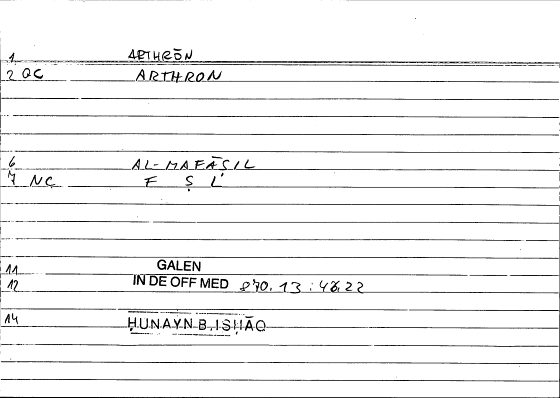 1 ARTHRŌN
2 QC ARTHRON
6 AL-MAFĀṢIL
7 NC F Ṣ L
11 GALEN
12 IN DE OFF MED 870.13 : 48.22
14 ḤUNAYN B. ISḤĀQ